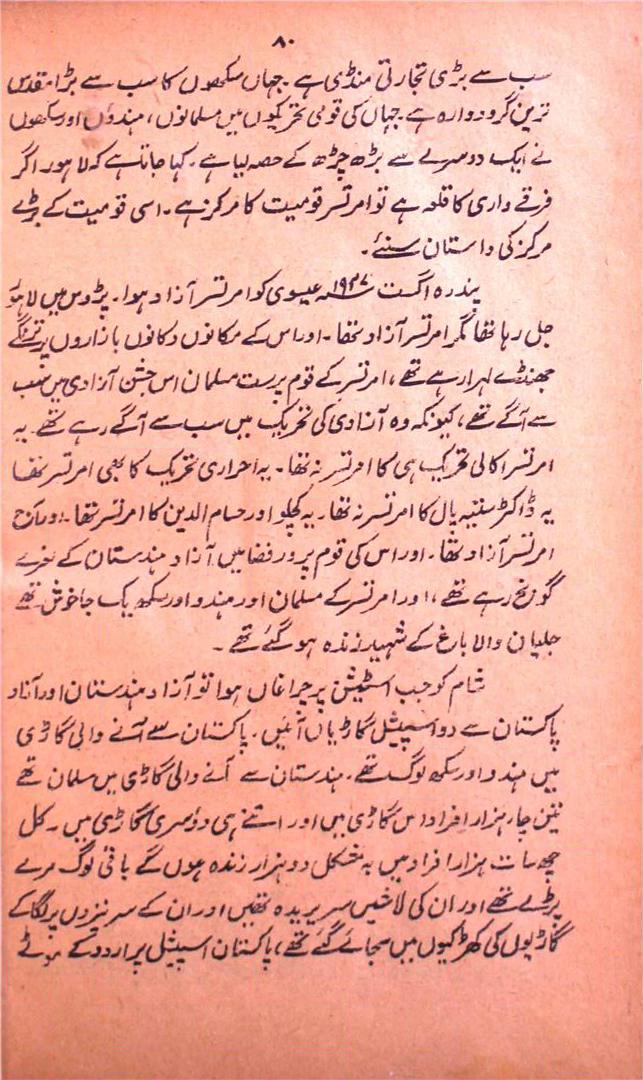 ۸۰
سب سے بڑی تجارتی منڈی ہے۔ جہاں سکھوں کا سب سے بڑا مقدس
ترین گرودوارہ ہے۔ جہاں کی قومی تحریکوں میں مسلمانوں، ہندوؤں اور سکھوں
نے ایک دوسرے سے بڑھ چڑھ کے حصہ لیا ہے۔ کہا جاتا ہے کہ لاہور اگر
فرقے داری کا قلعہ ہے تو امرتسر قومیت کا مرکز ہے۔ اسی قومیت کے بڑے
مرکز کی داستان سنئے۔
پندرہ اگست ۱۹۴۷ء عیسوی کو امرتسر آزاد ہوا۔ پڑوس میں لاہور
جل رہا تھا مگر امرتسر آزاد تھا۔ اور اس کے مکانوں دکانوں بازاروں پر ترنگے
جھنڈے لہرا رہے تھے، امرتسر کے قوم پرست مسلمان اس جشن آزادی میں سب
سے آگے تھے، کیونکہ وہ آزادی کی تحریک میں سب سے آگے رہے تھے۔ یہ
امرتسر اکالی تحریک ہی کا امرتسر نہ تھا۔ یہ احراری تحریک کا بھی امرتسر تھا
یہ ڈاکٹر ستیہ پال کا امرتسر نہ تھا۔ یہ کچلو اور حسام الدین کا امرتسر تھا۔ اور آج
امرتسر آزاد تھا۔ اور اس کی قوم پرور فضا میں آزاد ہندستان کے نعرے
گونج رہے تھے، اور امرتسر کے مسلمان اور ہندو اور سکھ یک جا خوش تھے
جلیان والا باغ کے شہید زندہ ہو گئے تھے۔
شام کو جب اسٹیشن پر چراغاں ہوا تو آزاد ہندستان اور آزاد
پاکستان سے دو اسپیشل گاڑیاں آئیں۔ پاکستان سے آنے والی گاڑی
میں ہندو اور سکھ لوگ تھے۔ ہندستان سے آنے والی گاڑی میں مسلمان تھے
تین چار ہزار افراد اس گاڑی میں اور اتنے ہی دوسری گاڑی میں۔ کل
چھ سات ہزار افراد میں بہ مشکل دو ہزار زندہ ہوں گے باقی لوگ مرے
پڑے تھے اور ان کی لاشیں سر بریدہ تھیں اور ان کے سر نیزوں پر لگا کے
گاڑیوں کی کھڑکیوں میں سجائے گئے تھے، پاکستان اسپیشل پر اردو کے موٹے